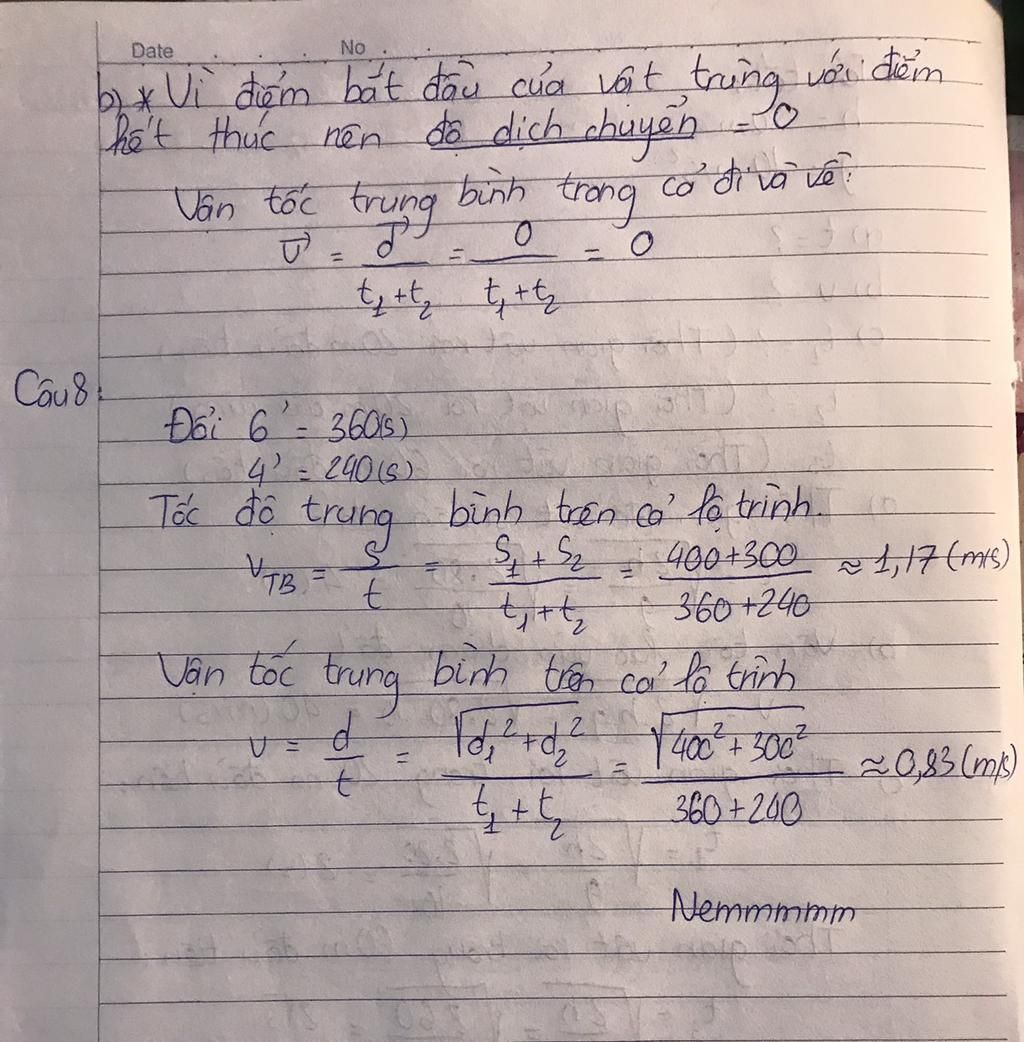 Date No
b) * Vì điểm bắt đầu của vật trùng với điểm
kết thúc nên độ dịch chuyển = 0
Vận tốc trung bình trong cả đi và về:
v⃗ = d⃗ / (t₁+t₂) = 0 / (t₁+t₂) = 0
Câu 8:
Đổi 6' = 360(s)
4' = 240(s)
Tốc độ trung bình trên cả lộ trình.
v_TB = S / t = (S₁ + S₂) / (t₁ + t₂) = (400+300) / (360+240) ≈ 1,17 (m/s)
Vận tốc trung bình trên cả lộ trình
v = d / t = √(d₁² + d₂²) / (t₁ + t₂) = √(400² + 300²) / (360+240) ≈ 0,83 (m/s)
Nemmmmm